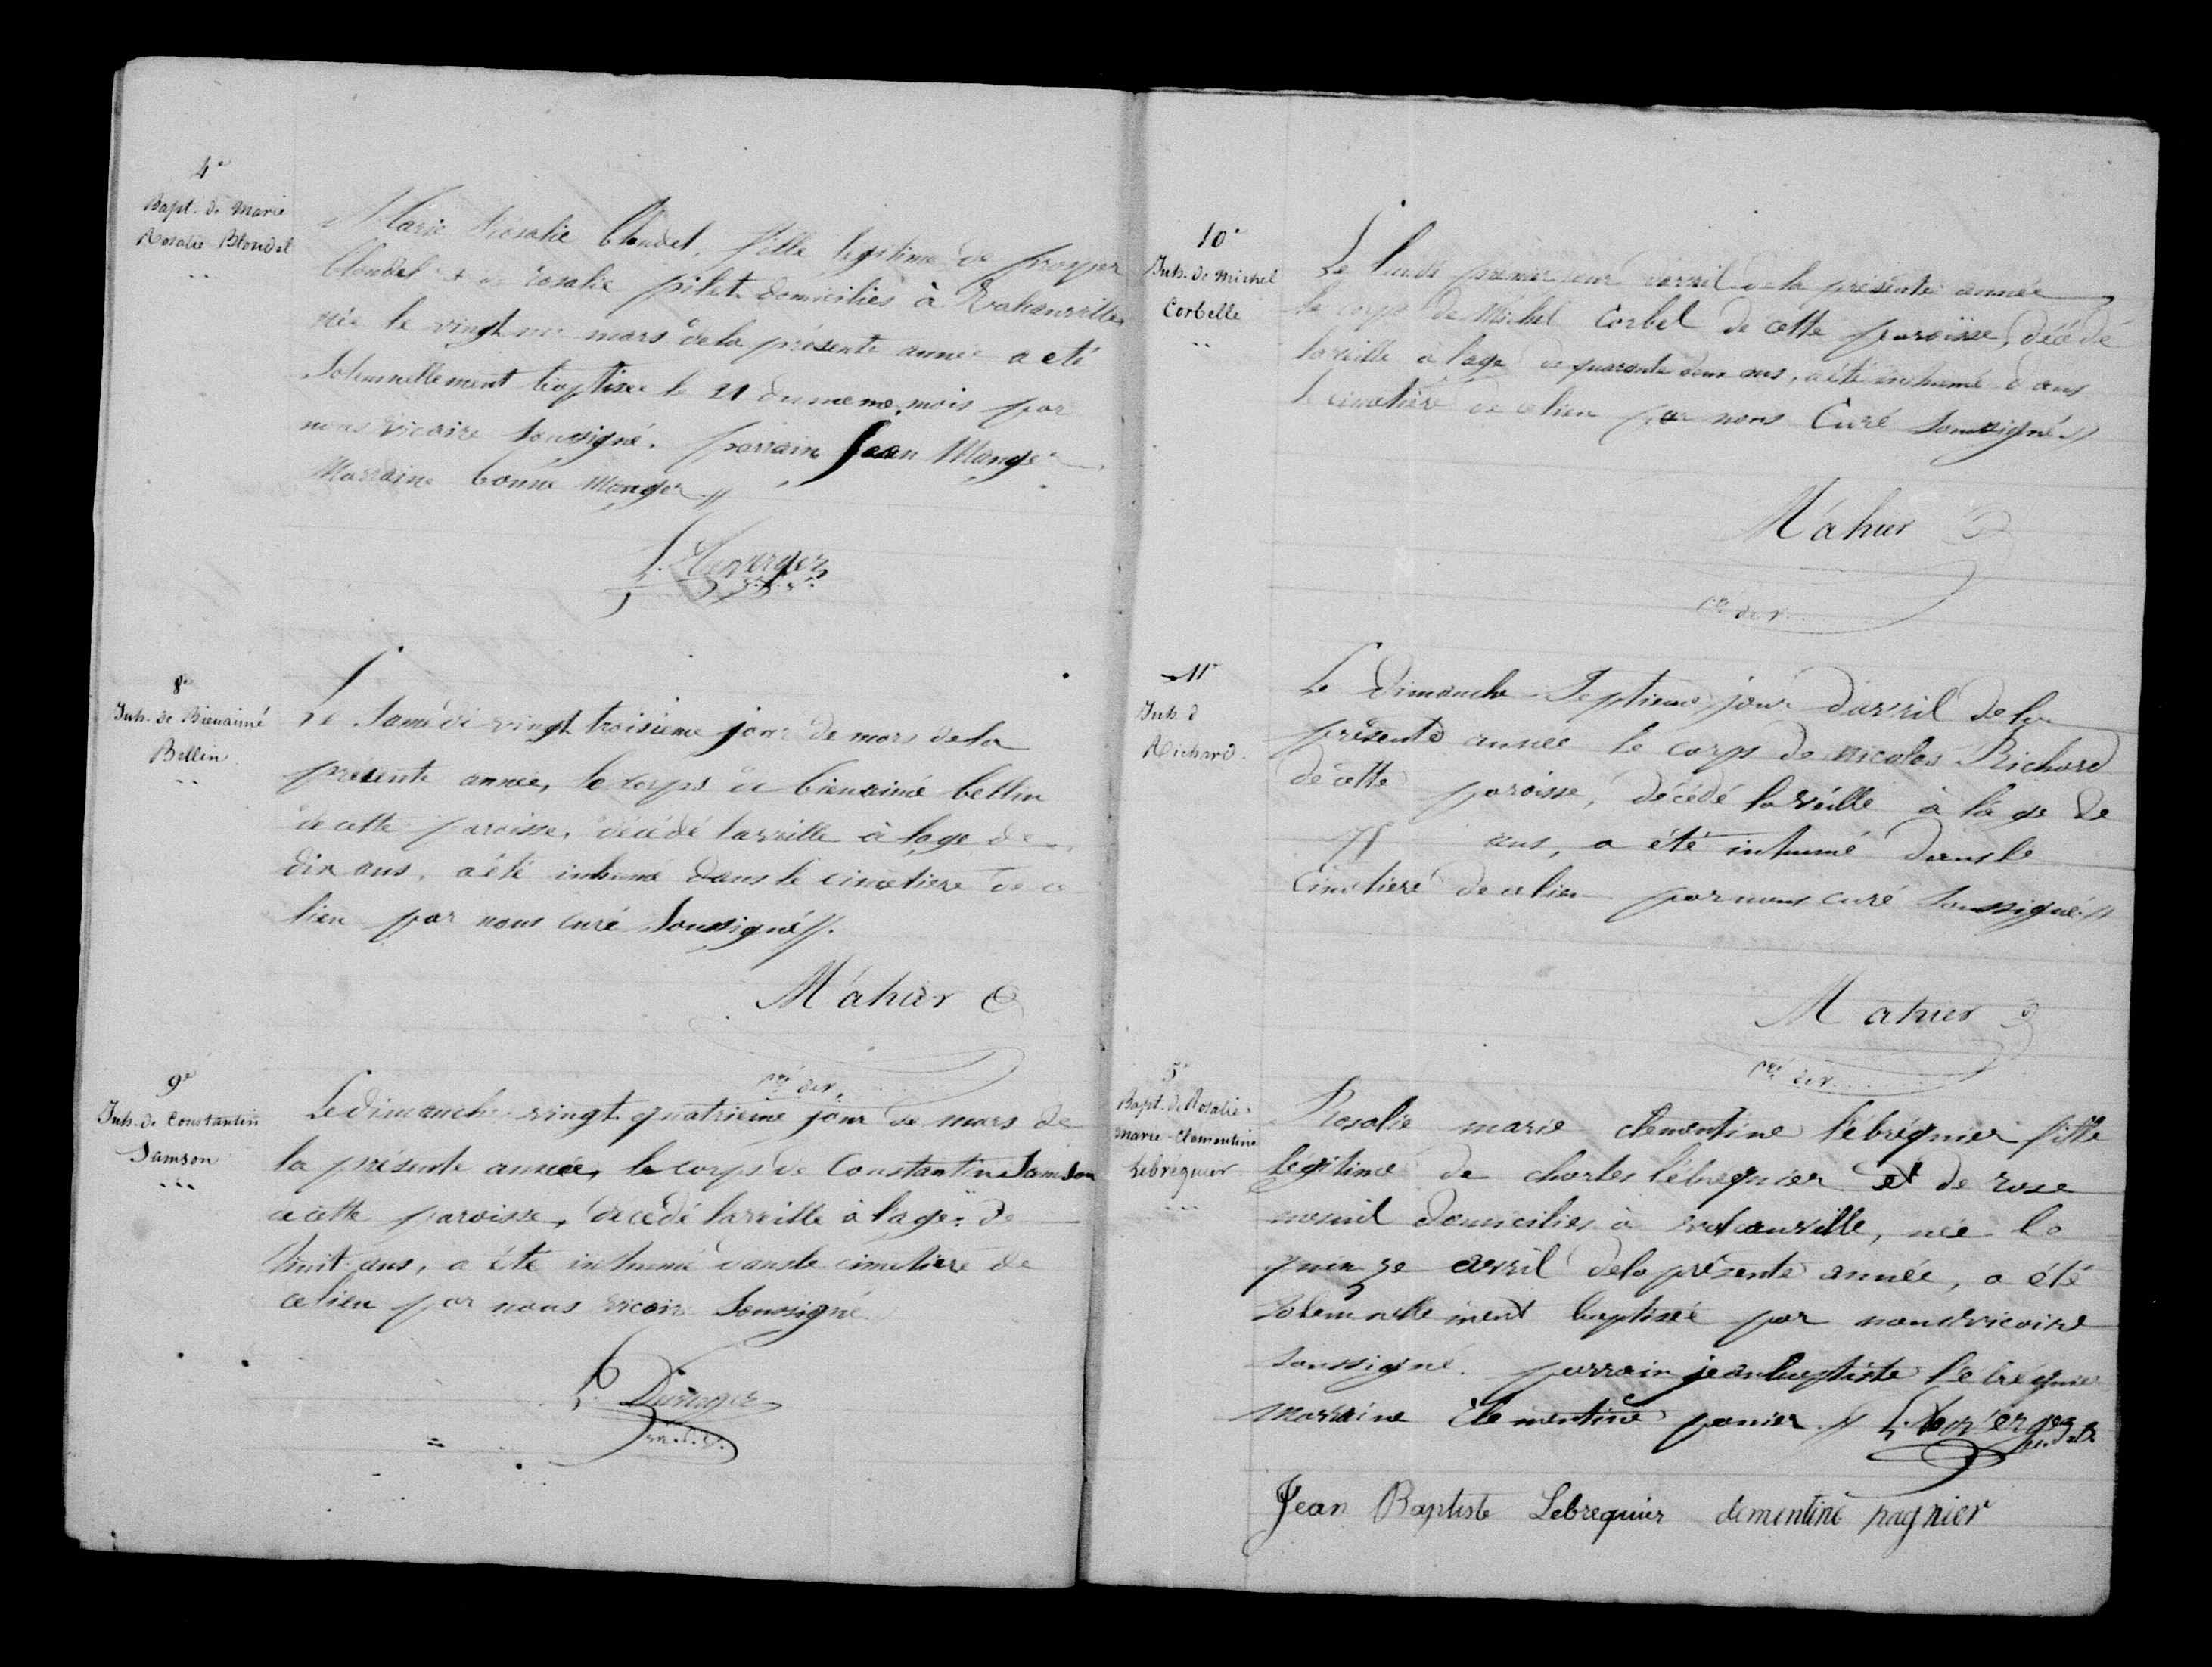 4e
Bapt. de Marie
Rosalie Blondel
Marie Rosalie blondel, fille légitime de prosper
blondel et de rosalie pilet domiciliés à
née le vingt un mars de la présente année a été
Solennellement baptisée le 21 du meme mois par
nous vicaire soussigné. parrain Jean Manger
Marraine bonne Manger //
8e
Inh. de Bienaimé
Bellin
Le Samedi vingt troisieme jour de mars de la
présente année, le corps de bienaimé bellin
de cette paroisse, décédé la veille à l'age de
dix ans, a été inhumé dans le cimetiere de ce
lieu par nous curé Soussigné //.
Mahier
cé de r.
9e
Inh. de Constantin
Samson
Le dimanche vingt quatrieme jour de mars de
la présente année, le corps de Constantin Samson
de cette paroisse, décédé la veille à l'age de
huit ans, a été inhumé dans le cimetiere de
ce lieu par nous vicaire Soussigné
10e
Inh. de Michel
Corbelle
Le lundi premier jour d'avril de la présente année
le corps de Michel Corbel de cette paroisse, décédé
la veille à l'age de quarante deux ans, a été inhumé dans
le cimetière de ce lieu par nous Curé Soussigné //
Mahier
cé de r.
11e
Inh. d
Richard
Le dimanche Septieme jour d'avril de la
présente année le corps de nicolas Richard
de cette paroisse, décédé la veille à l'âge de
ans, a été inhumé dans le
Cimetiere de ce lieu par nous curé Soussigné //
Mahier
cé de r.
5e
Bapt. de Rosalie
Marie-Clementine
Lebréquier
Rosalie marie clementine lébréquier fille
légitime de charles lébrequier et de rose
mesnil domiciliés à, née le
quinze avril de la présente année, a été
solennellement baptisée par nous vicaire
soussigné. parrain jean baptiste lébréquier
marraine clementine panier. //
Jean Baptiste Lebrequier clementine pagnier